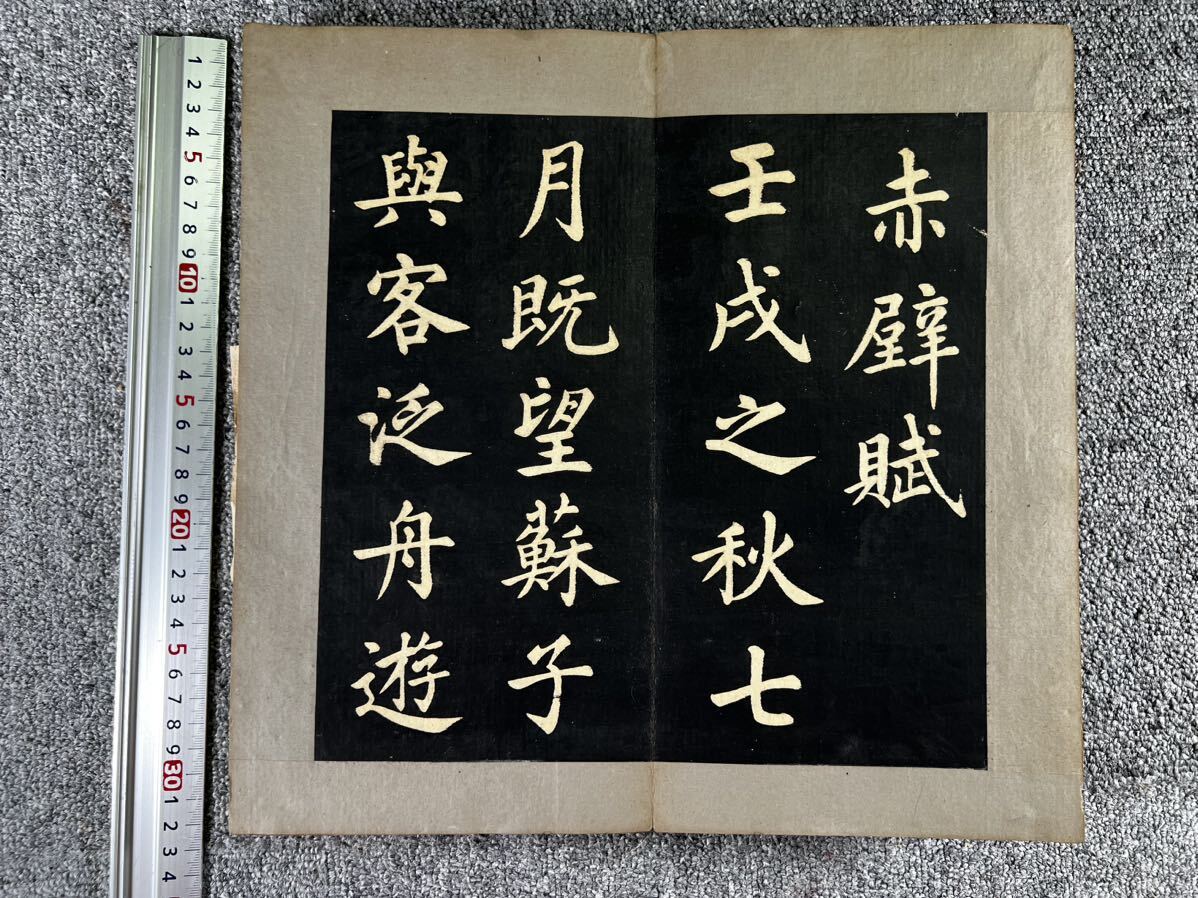 赤壁賦
壬戌之秋七
月既望蘇子
與客泛舟遊
1 2 3 4 5 6 7 8 9 10 1 2 3 4 5 6 7 8 9 20 1 2 3 4 5 6 7 8 9 30 1 2 3 4